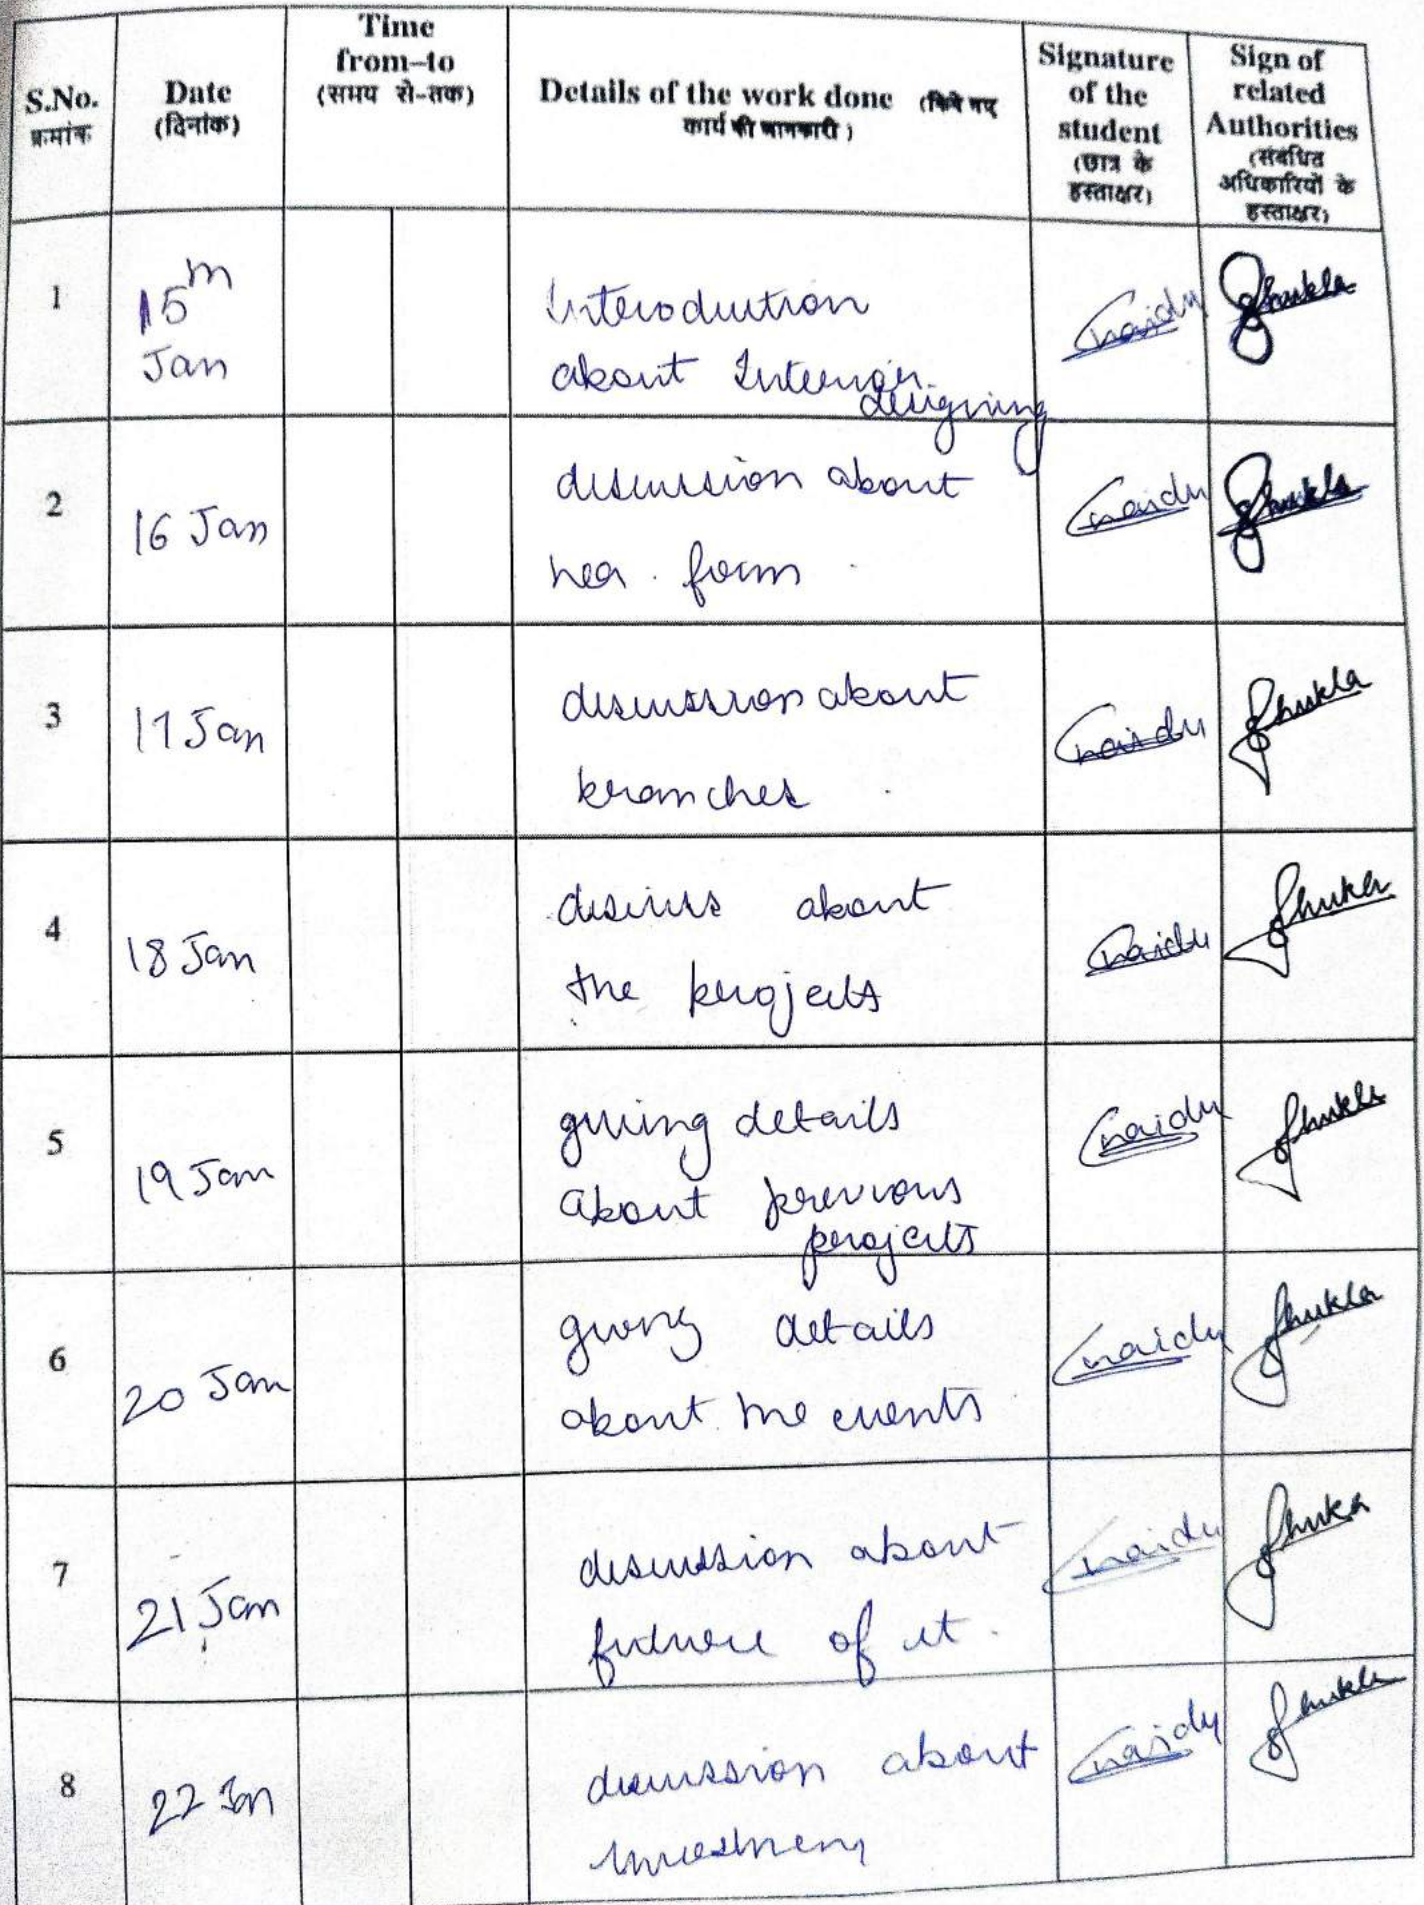 S.No.
क्रमांक
Date
(दिनांक)
Time
from–to
(समय से-तक)
Details of the work done (किये गए
कार्य की जानकारी)
Signature
of the
student
(छात्र के
हस्ताक्षर)
Sign of
related
Authorities
(संबंधित
अधिकारियों के
हस्ताक्षर)
1
15th
Jan
Interoduction
about Interior
designing
naidu
Shukla
2
16 Jan
discussion about
form
naidu
Shukla
3
17 Jan
discussion about
branches
naidu
Shukla
4
18 Jan
discuss about
the projects
naidu
Shukla
5
19 Jan
giving details
about previous
projects
naidu
Shukla
6
20 Jan
giving details
about the events
naidu
Shukla
7
21 Jan
discussion about
future of it.
naidu
Shukla
8
22 Jan
discussion about
naidu
Shukla